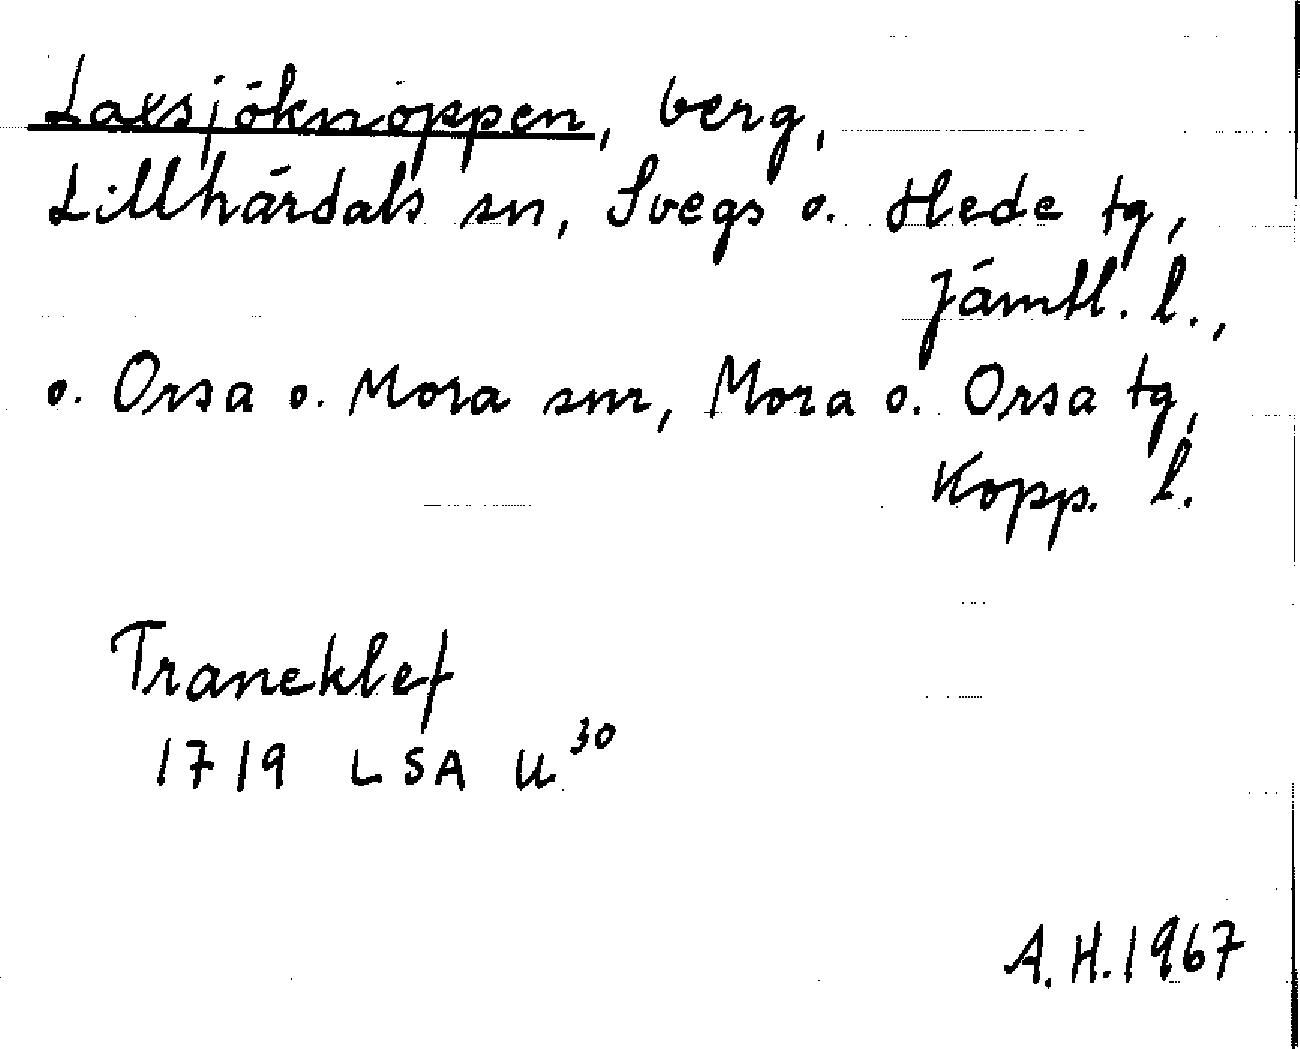 Laxsjöknöppen, berg,
Lillhärdals sn, Svegs o. Hede tg,
Jämtl. l.,
o. Orsa o. Mora snr, Mora o. Orsa tg,
Kopp. l.
Traneklef
1719 LSA U³⁰
A.H. 1967